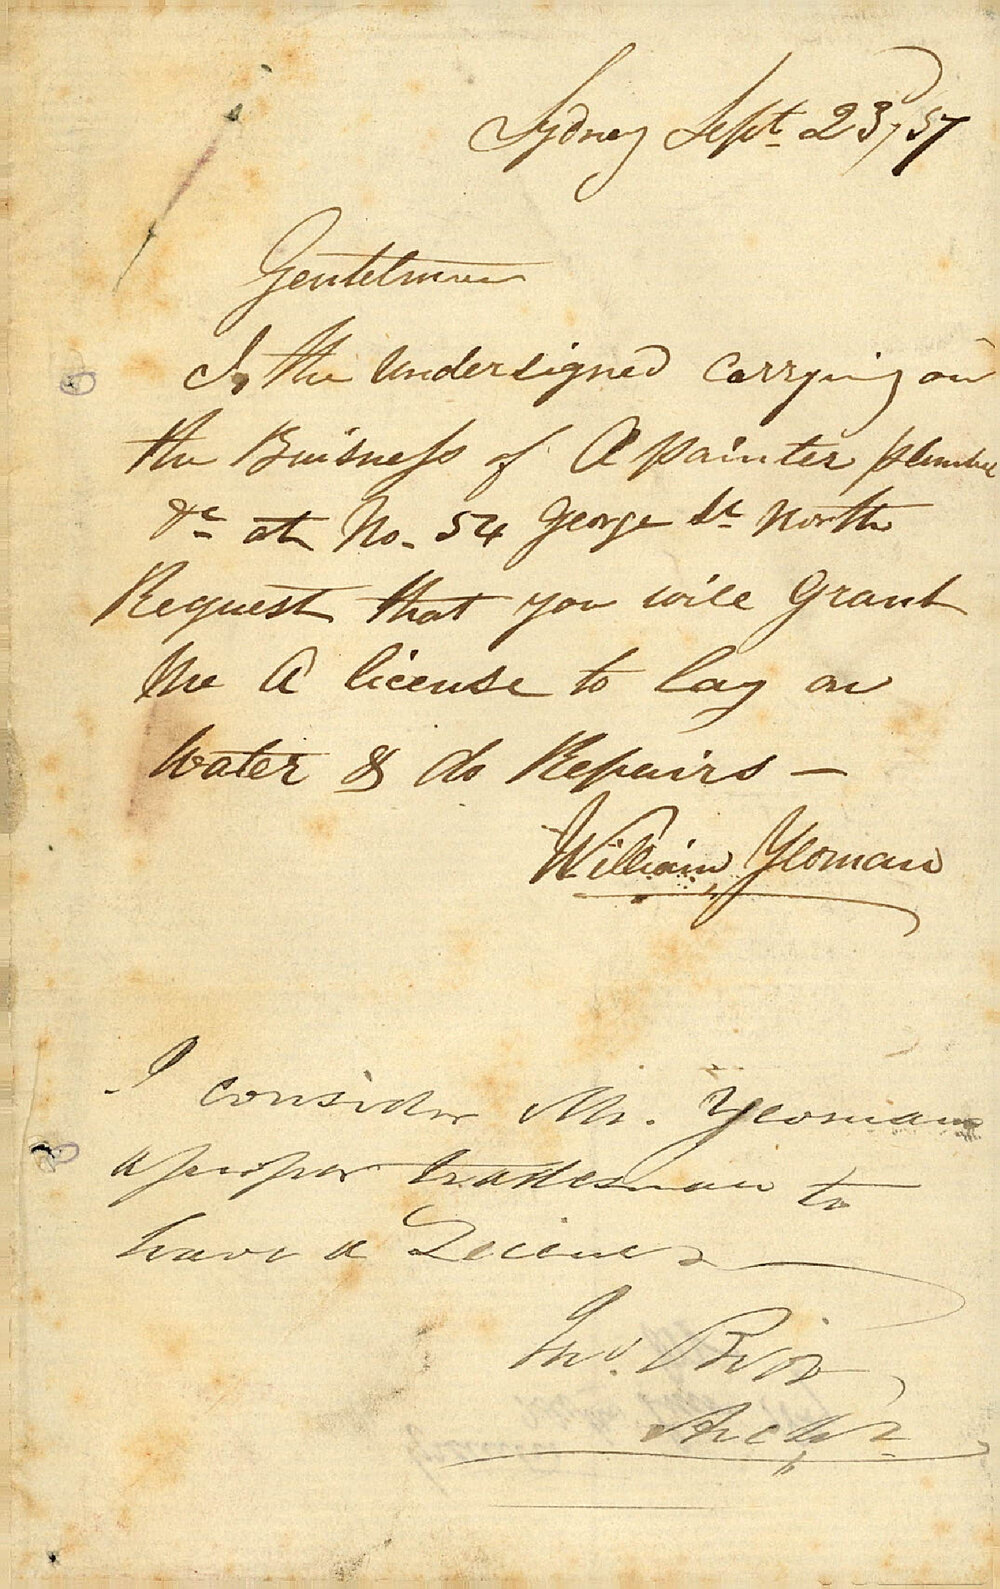 Sydney Sept. 23/57
Gentelmen
I, the Undersigned Carrying on
the Buisness of A painter plumber
&c at No. 54 George St North
Request that you will Grant
Me A license to lay on
Water & do Repairs —
William Yeoman
I consider Mr. Yeoman
a proper tradesman to
have a License
Jno. Bibb
Archt.